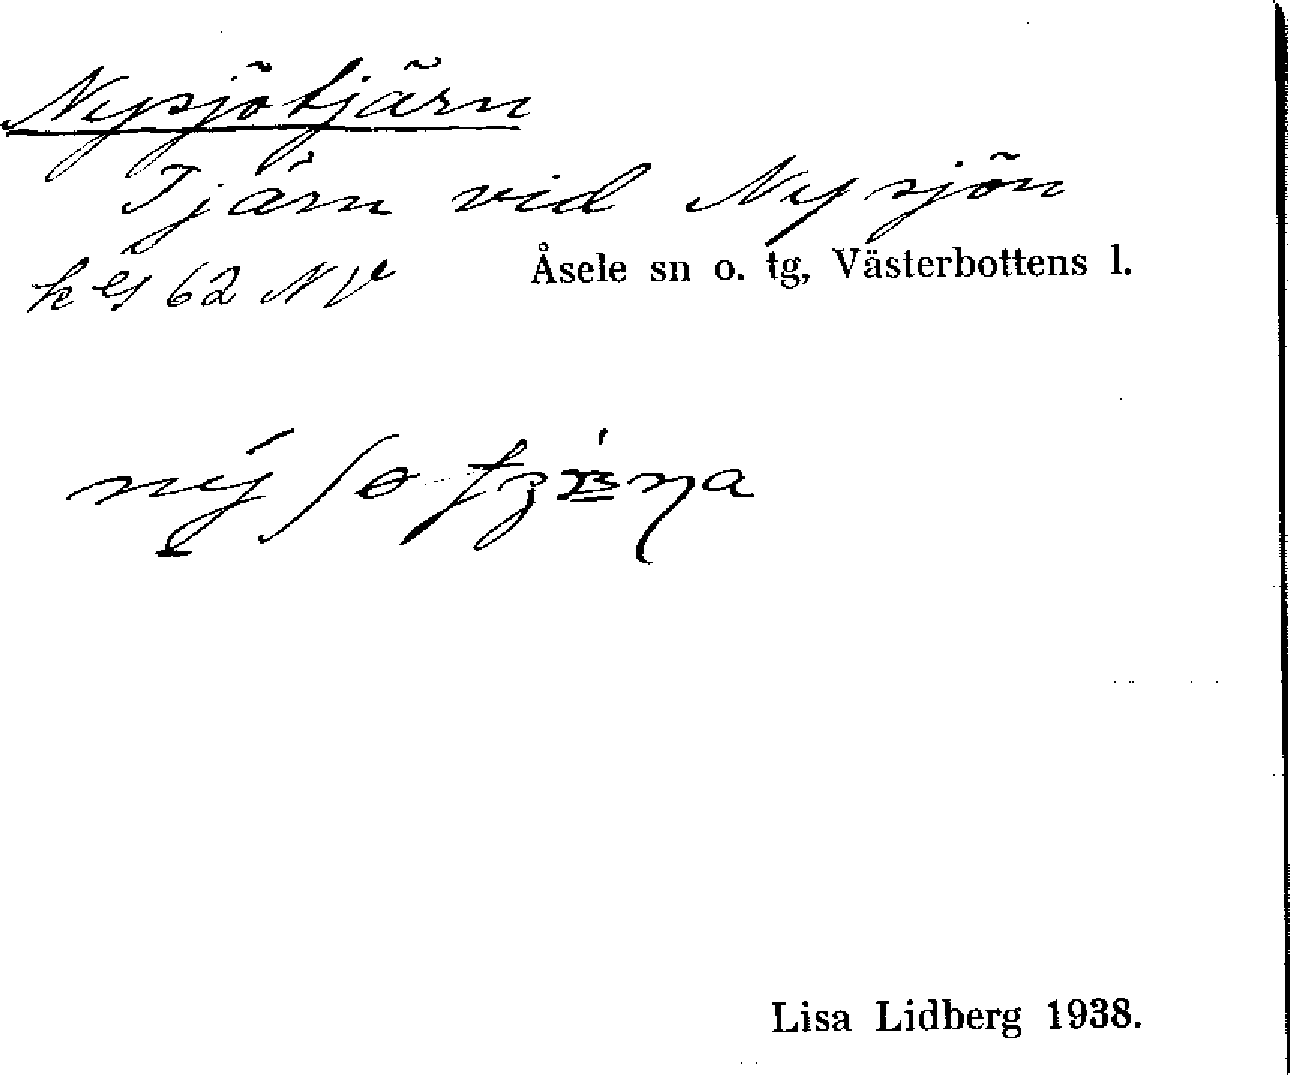 Nysjötjärn
Tjärn vid Nysjön
62 NV Åsele sn o. tg, Västerbottens l.
Lisa Lidberg 1938.